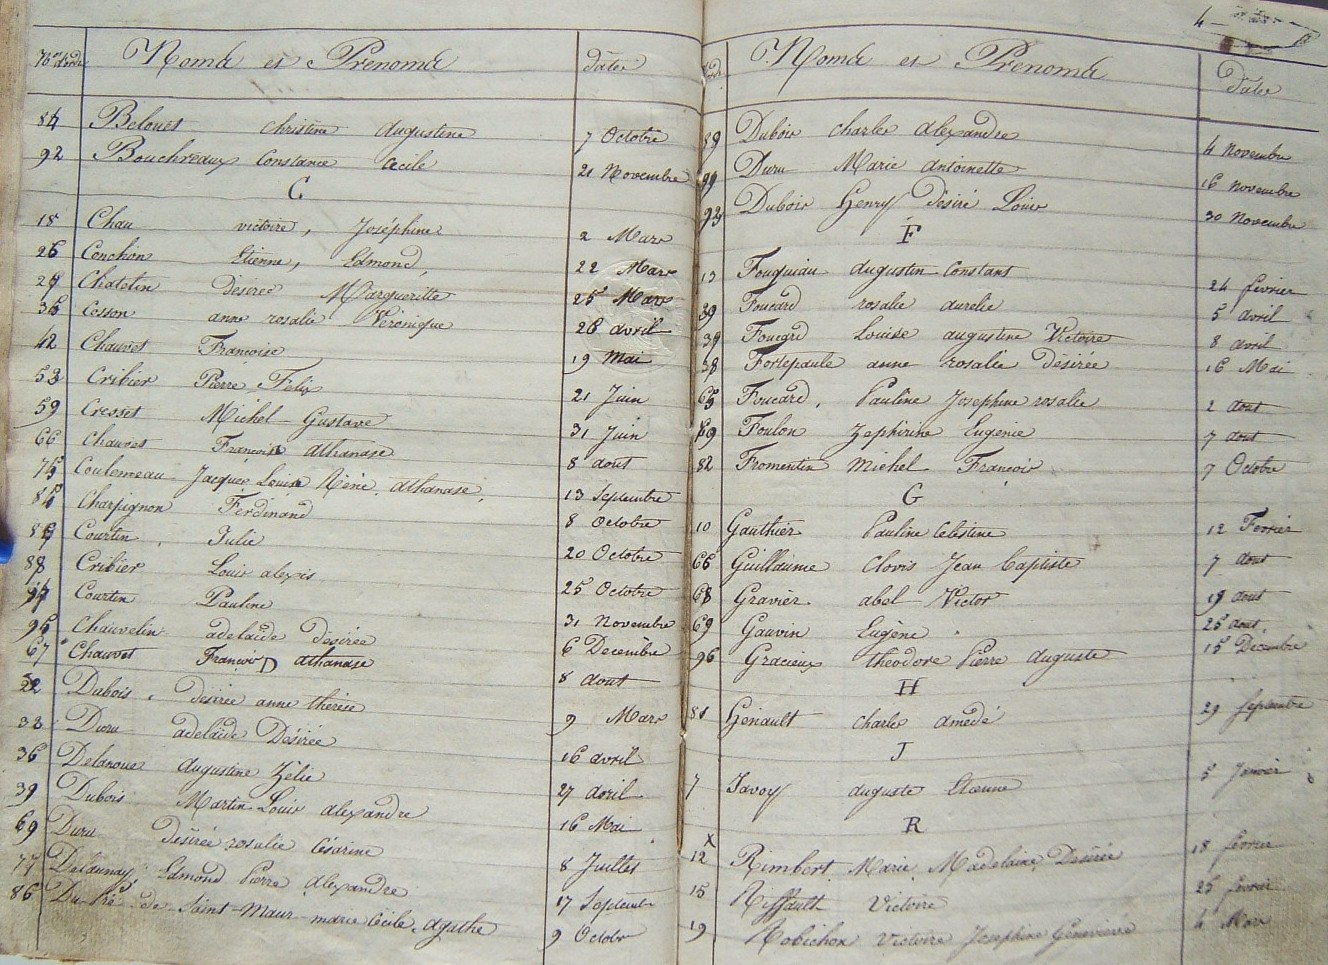 Nos d'ordre Noms et Prenoms dates
84 Belouet christine augustine 7 Octobre
92 Bouchreaux Constance Cecile 21 Novembre
C
18 Chau victoire, Joséphine 2 Mars
26 Conchon Etienne, Edmond, 22 Mars
27 Chatelin desiree Margueritte 25 Mars
Cosson anne rosalie Véronique 28 avril
42 Chauvet Françoise 19 Mai
53 Cribier Pierre Felix 21 Juin
59 Cresset Michel Gustave 31 Juin
66 Chauvet François athanase 8 aout
75 Coulemeau Jacques Louis Réné athanase, 13 Septembre
Charpignon Ferdinand 8 Octobre
Courtin Julie 20 Octobre
88 Cribier Louis alexis 25 Octobre
Courtin Pauline 31 Novembre
95 Chauvelin adelaïde désirée 6 Decembre
67 Chauvet François athanase 8 aout
D
22 Dubois, désirée anne thérèse 9 Mars
33 Duru adelaïde Désirée 16 avril
36 Delanoue augustine Zélie 27 avril
39 Dubois Martin Louis alexandre 16 Mai
69 Duru désirée rosalie Césarine 8 Juillet
77 Delaunay Edmond Pierre alexandre 17 Septembre
86 Du Pré de Saint-Maur marie Cécile agathe 9 Octobre
4
Noms et Prenoms dates
89 Dubois charles alexandre 4 Novembre
Duru Marie antoinette 16 Novembre
93 Dubois Henry désiré Louis 30 Novembre
F
13 Fouquiau augustin Constant 24 février
Foucard rosalie aurelie 5 avril
Foucard Louise augustine Victoire 8 avril
38 Fortepaule anne rosalie désirée 16 Mai
65 Foucard, Pauline Josephine rosalie 2 aout
69 Foulon Zephirine Eugénie 7 aout
82 Fromentin Michel François 7 Octobre
G
10 Gauthier Pauline Celestine 12 Fevrier
66 Guillaume Clovis Jean baptiste 7 aout
68 Gravier abel Victor 19 aout
69 Gauvin Eugène 26 aout
96 Gracieux théodore Pierre auguste 15 Décembre
H
81 Hénault charles amedé 29 Septembre
J
7 Javoy auguste Etienne 5 Janvier
R
X
12 Rimbert Marie Madelaine Désirée 18 février
15 Riffault Victoire 25 fevrier
19 Robichon Victoire Josephine Geneviève 4 Mars